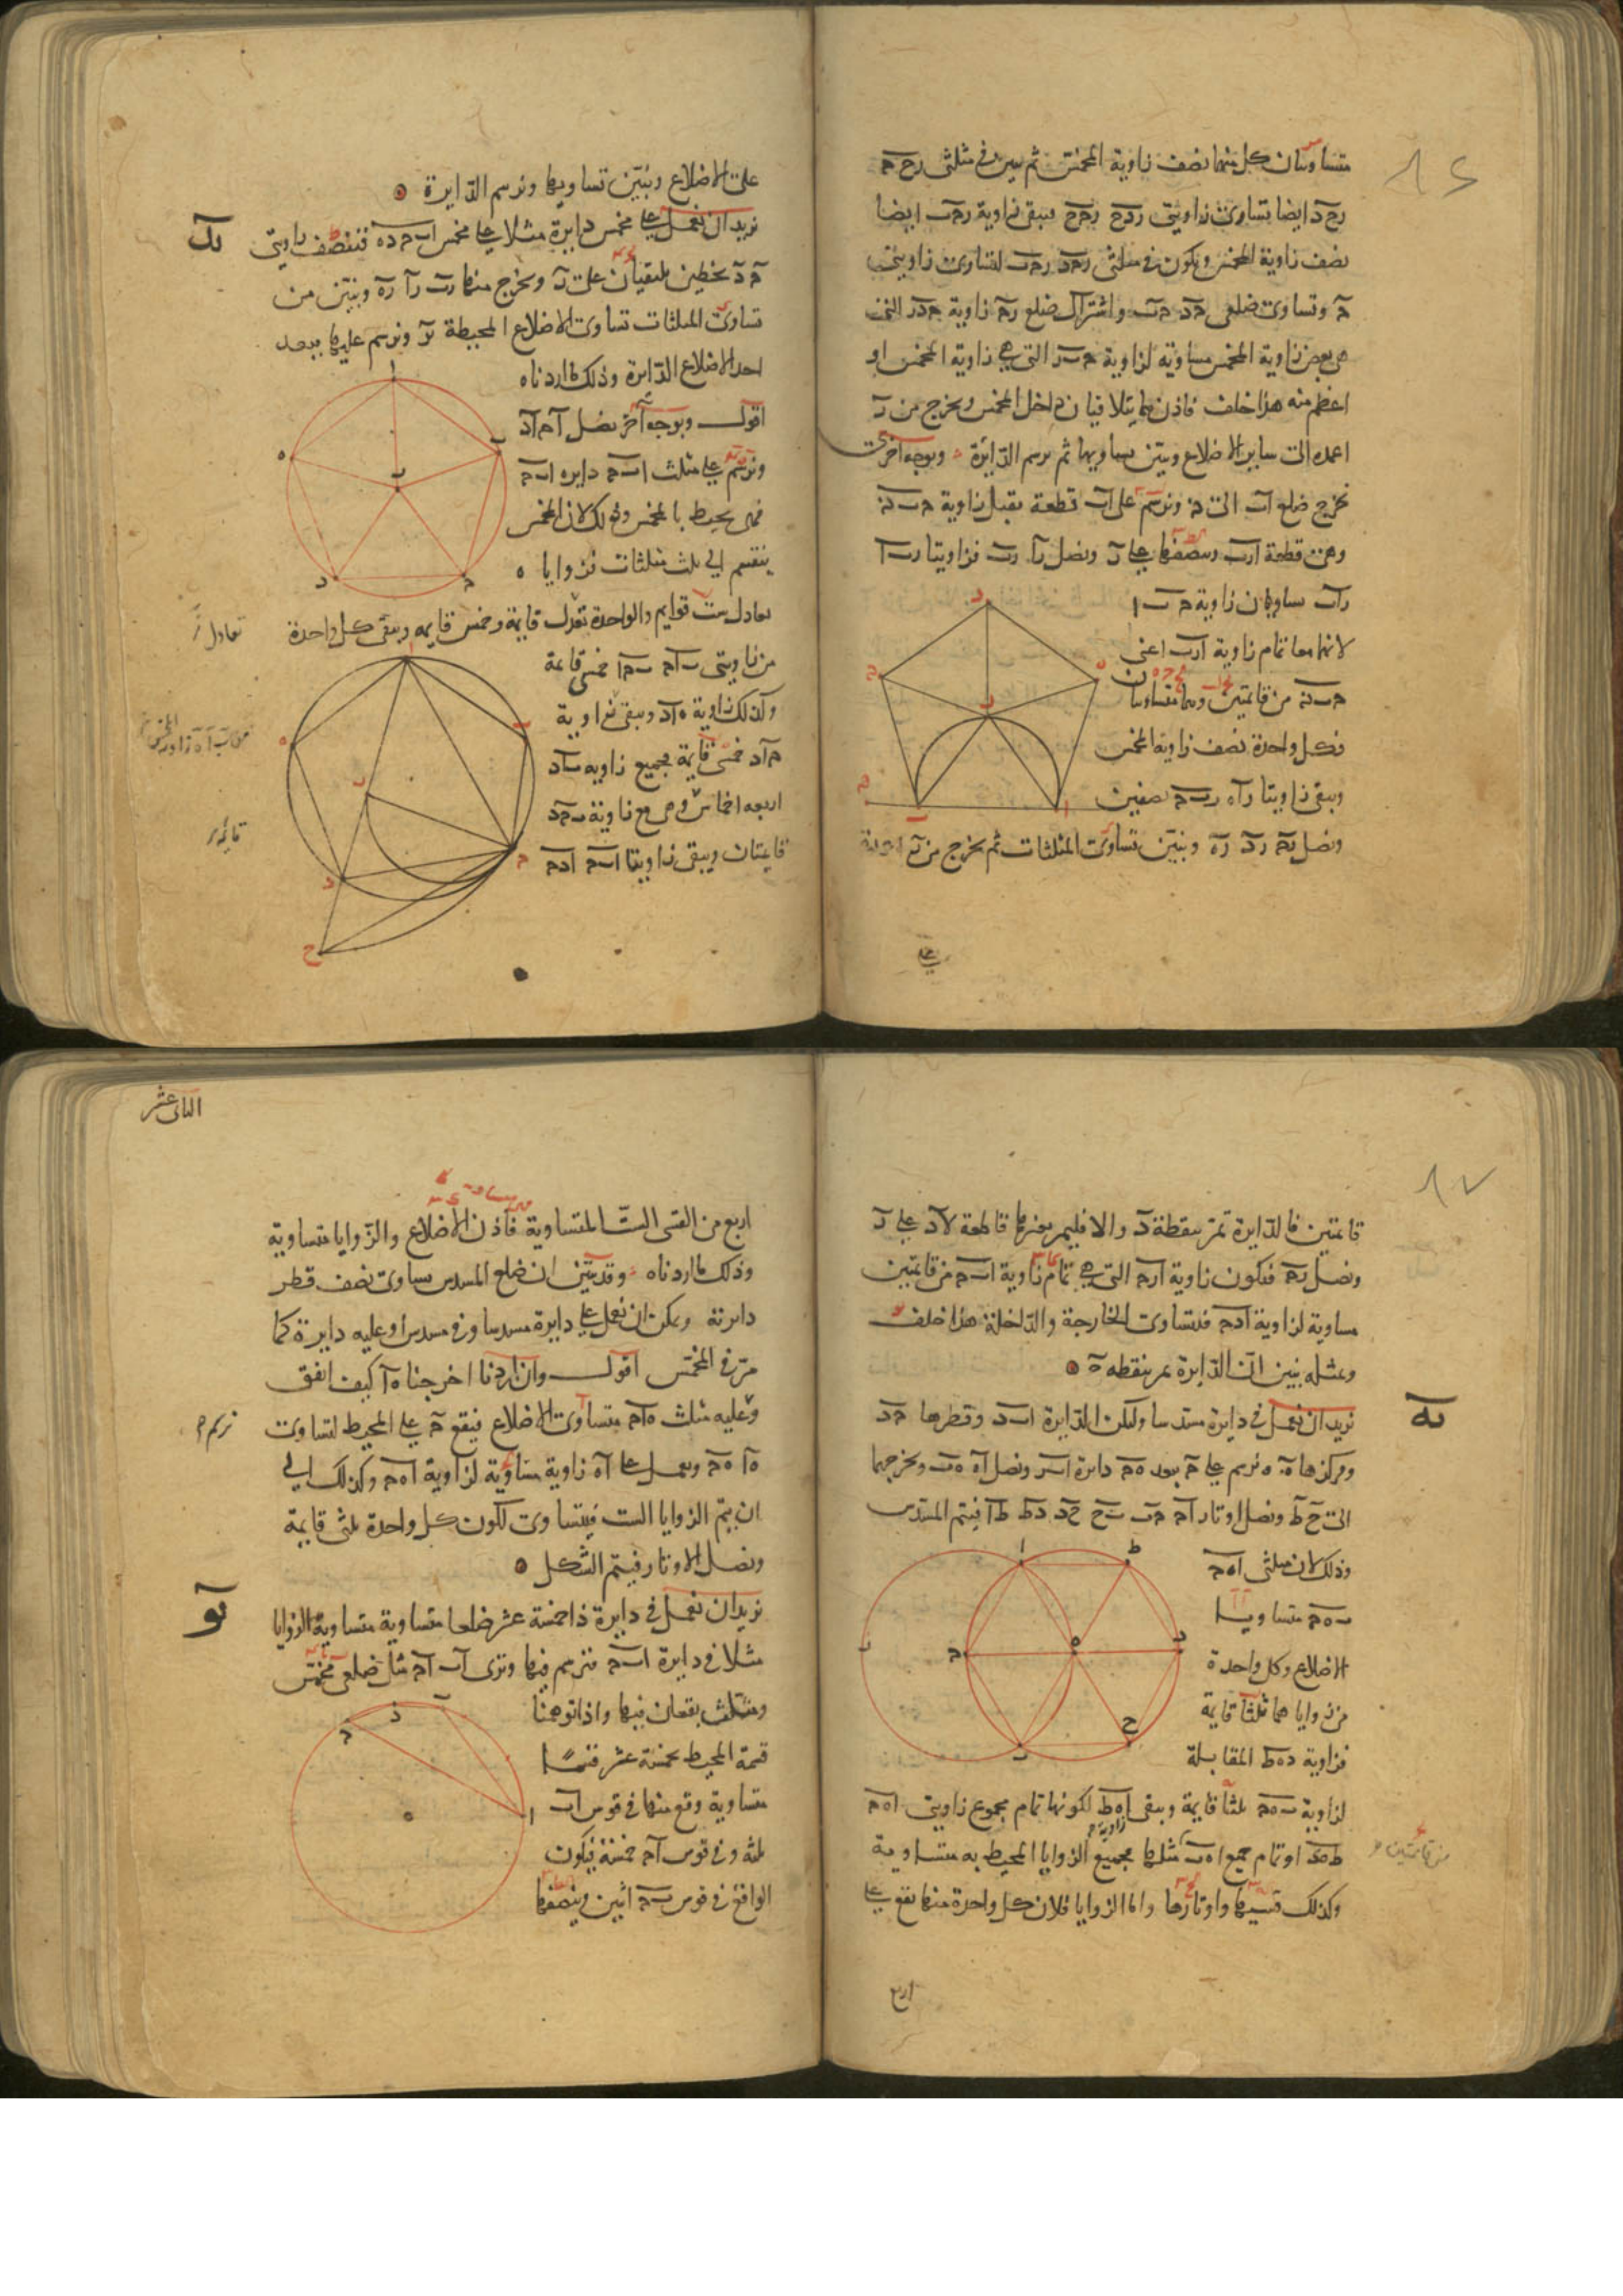 متساويتان كل منهما نصف زاوية المخمس ثم نبين في مثلثى رح حـ
رح د ايضا تساوى زاويتى ردح رحح فيبقى زاوية رحب ايضا
نصف زاوية المخمس ويكون في مثلثى رحد رحب لتساوى زاويتى
حـ وتساوى ضلعى حد حب واشتراك ضلع رح زاوية حدر التى
هى بعض زاوية المخمس مساوية لزاوية حبر التى هى زاوية المخمس او
اعظم منه هذا خلف فاذن هما يتلاقيان داخل المخمس ونخرج من ر
اعمده الى ساير الاضلاع ونبين تساويها ثم نرسم الدايرة وبوجه اخر
نخرج ضلع اب الى ونرسم على اب قطعة تقبل زاوية
وهى قطعة ارب وننصفها على ر ونصل را رب فزاويتا رب ا
راب تساويان زاوية حـ ب ا
لانهما معا تمام زاوية ارب اعنى
من قائمتين وهما متساويتان
فكل واحدة نصف زاوية المخمس
ويبقى زاويتا راه ربحـ نصفين
ونصل رحـ رد ره ونبين تساوى المثلثات ثم نخرج من ر اعمدة
على
على الاضلاع ونبين تساويها ونرسم الدايرة
كد
نريد ان نعمل على مخمس دايرة مثلا على مخمس ابحده فننصف زاويتى
حـ د بخطين يلتقيان على ر ونخرج منها رب را ره ونبين من
تساوى المثلثات تساوى الاضلاع المحيطة بر ونرسم عليها ببعد
احد الاضلاع الدايرة وذلك ما اردناه
اقول وبوجه آخر نصل احـ اد
ونرسم على مثلث ابحـ دايرة ابحـ
فهى يحيط بالمخمس وذلك لان المخمس
ينقسم الى ثلث مثلثات فزوايا ه
تعادل ست قوايم والواحدة تعدل قايمة وخمس قايمه ويبقى كل واحدة
تعادل
من زاويتى باحـ بحـا خمسى قايمة
وكذلك زاوية هاد ويبقى زاوية
حاد خمسى قايمة فجميع زاويه باد
اربعه اخماس وهى مع زاوية بحد
قايمتان ويبقى زاويتا ابحـ ادحـ
قايمتين فالدايرة تمر بنقطة د والا فليمر بغيرها قاطعة لاد على ر
ونصل رحـ فيكون زاوية ارحـ التى هى تمام زاوية ابحـ من قايمتين
مساوية لزاوية ادحـ فتساوى الخارجة والداخلة هذا خلف
وبمثله نبين ان الدايرة تمر بنقطه ه
كه
نريد ان نعمل في دايرة مسدسا وليكن الدايرة ابد وقطرها حد
ومركزها ه فنرسم على حـ ببعد هحـ دايرة ابر ونصل اه هب ونخرجهما
الى ح ط ونصل اوتار احـ حب بح حد دط طا فيتم المسدس
وذلك لان مثلثى اهحـ
بهحـ متساويا
الاضلاع وكل واحدة
من زوايا هما ثلثا قايمة
فزاوية دهط المقابلة
لزاوية بهحـ ثلثا قايمة ويبقى اهط لكونها تمام مجموع زاويتى اهحـ
طهد او تمام جميع اهب مثلها فجميع الزوايا المحيط به متساوية
وكذلك قسيها واوتارها واما الزوايا فلان كل واحدة منها تقع على
اربع
الثانى عشر
اربع من القسى الست المتساوية فاذن الاضلاع والزوايا متساوية
وذلك ما اردناه وقد تبين ان ضلع المسدس يساوى نصف قطر
دايرته ويمكن ان نعمل على دايرة مسدسا وفى مسدس او عليه دايرة كما
مر في المخمس اقول وان اردنا اخرجنا ها كيف اتفق
وعليه مثلث هاحـ متساوى الاضلاع فيقع حـ على المحيط لتساوى
ها هحـ ونعمل على اه زاوية مساوية لزاوية اهحـ وكذلك الى
ان يتم الزوايا الست فيتساوى لكون كل واحدة ثلثى قايمة
ونصل الاوتار فيتم الشكل
كو
نريد ان نعمل في دايرة ذا خمسة عشر ضلعا متساوية متساوية الزوايا
مثلا في دايرة ابحـ فنرسم فيها وترى اب احـ مثل ضلعى مخمس
ومثلث يقعان فيها واذا توهمنا
قسمة المحيط بخمسة عشر قسما
متساوية وقع منها في قوس اب
ثلثة وفي قوس احـ خمسة فيكون
الواقع في قوس بحـ اثنين وننصفها